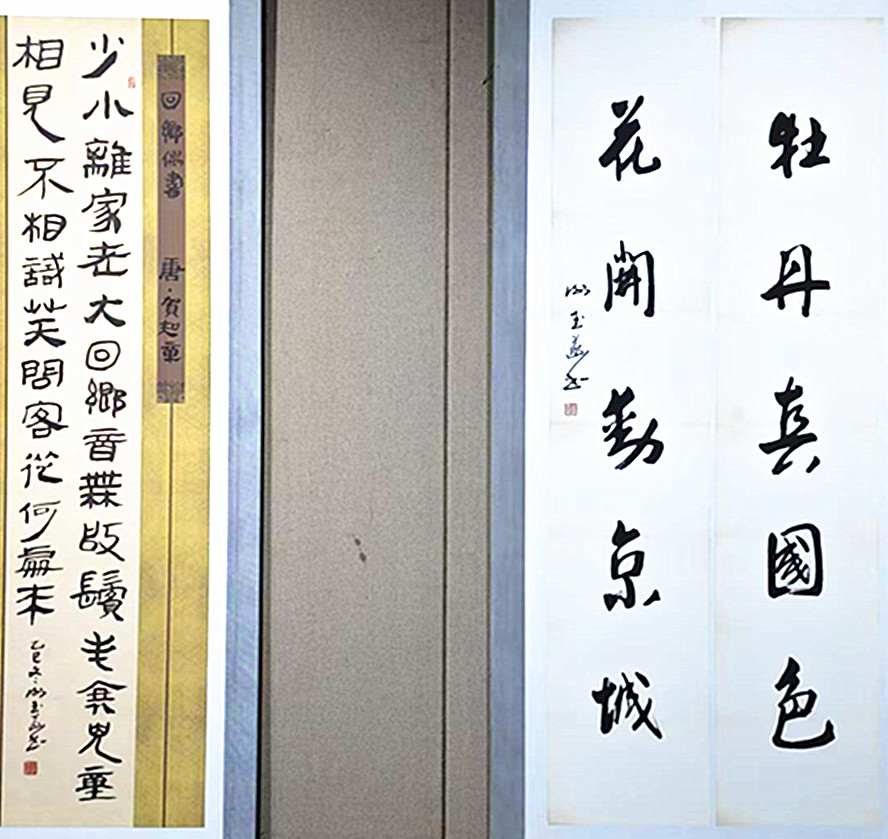 牡丹真國色
花開動京城
玉
回鄉偶書 唐·賀知章
少小離家老大回鄉音無改鬢毛衰兒童
相見不相識笑問客從何處來
乙巳冬